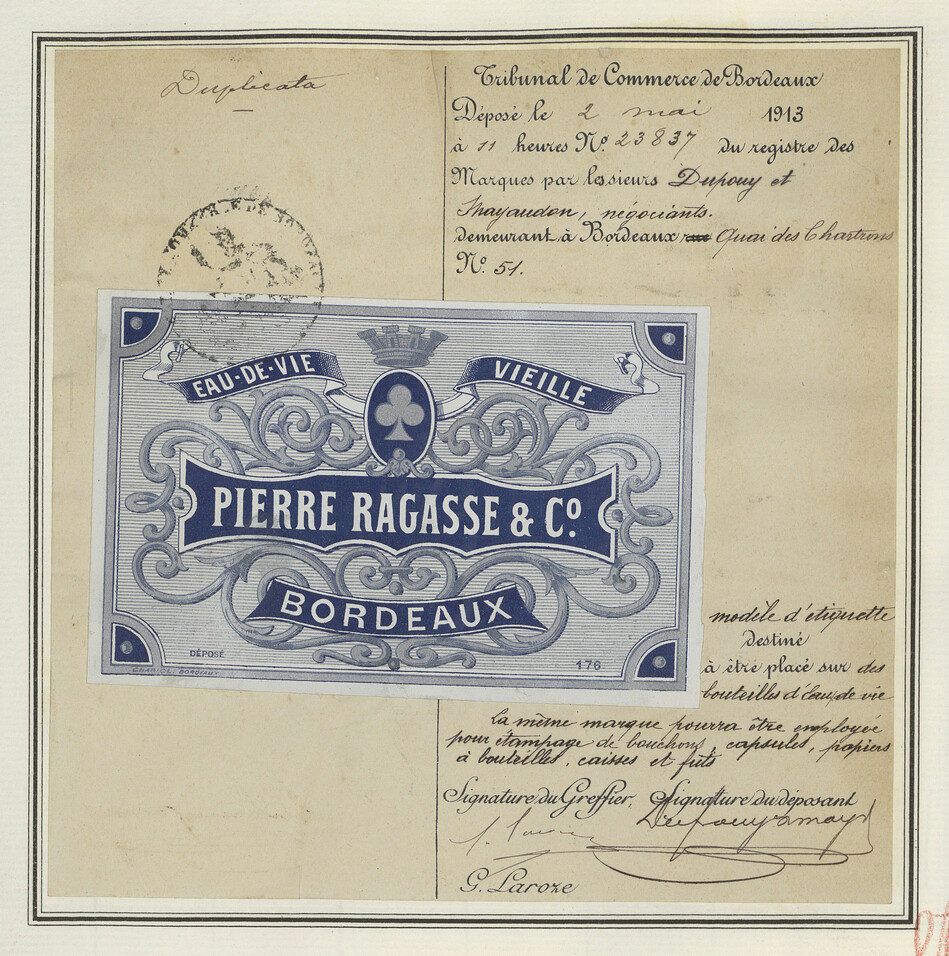 Duplicata
Tribunal de Commerce de Bordeaux
Déposé le 2 mai 1913
à 11 heures No. 23837 du registre des
Marques par les sieurs Dupouy et
négociants.
demeurant à Bordeaux Quai des Chartrons
No. 51.
EAU-DE-VIE VIEILLE
PIERRE RAGASSE & Co.
BORDEAUX
DÉPOSÉ
176
BORDEAUX
modèle d'étiquette
destiné
à être placé sur des
bouteilles d'Eau de vie
La même marque pourra être employée
pour étampage de bouchons, capsules, papiers
à bouteilles, caisses et fûts
Signature du Greffier, Signature du déposant
G. Laroze